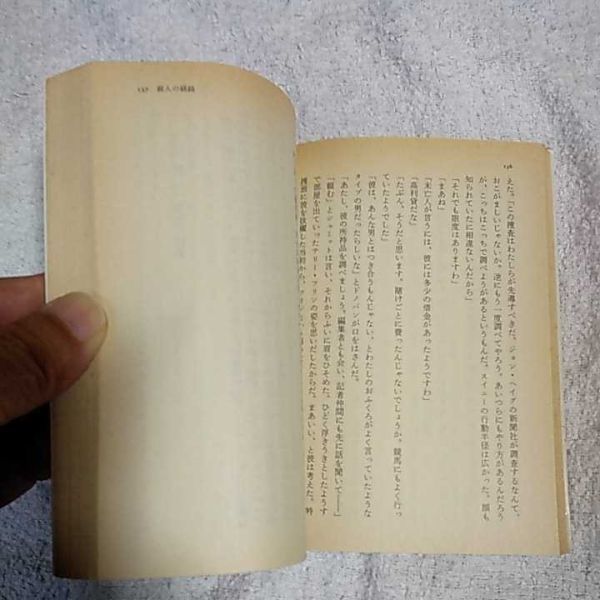 157 殺人の経緯
156
えた。「この捜査はわたしらが先導すべきだ。ジョン・ヘイグの新聞社が調査するなんて、
おこがましいじゃないか。池にもう一度調べてやろう。あいつらにもやり方があるんだろう
が、こっちはこっちで調べようがあるというもんだ。スイニーの行動半径は広かった。顔も
知られていたに相違ないんだから」
「それでも限度はありますわ」
「まあね」
「未亡人が言うには、彼には多少の借金があったようですわ」
「高利貸だな」
「たぶん、そうだと思います。賭けごとに費ったんじゃないでしょうか。競馬にもよく行っ
ていたようでした」
「彼は、あんな男とはつき合うもんじゃない、とわたしのおふくろがよく言っていたような
タイプの男だったらしいな」とドノバンが口をはさんだ。
「あたし、彼の所持品を調べましょう。編集者とも会い、記者仲間にも先に話を聞いて――」
「頼む」とジャミットは言い、それからふいに眉をひそめた。ひどく浮きうきとしたようす
で部屋を出ていったテリー・フリンの姿を思いだしたからだ。まあいい、と彼は考えた。特
捜班に彼を抜擢した当初から、